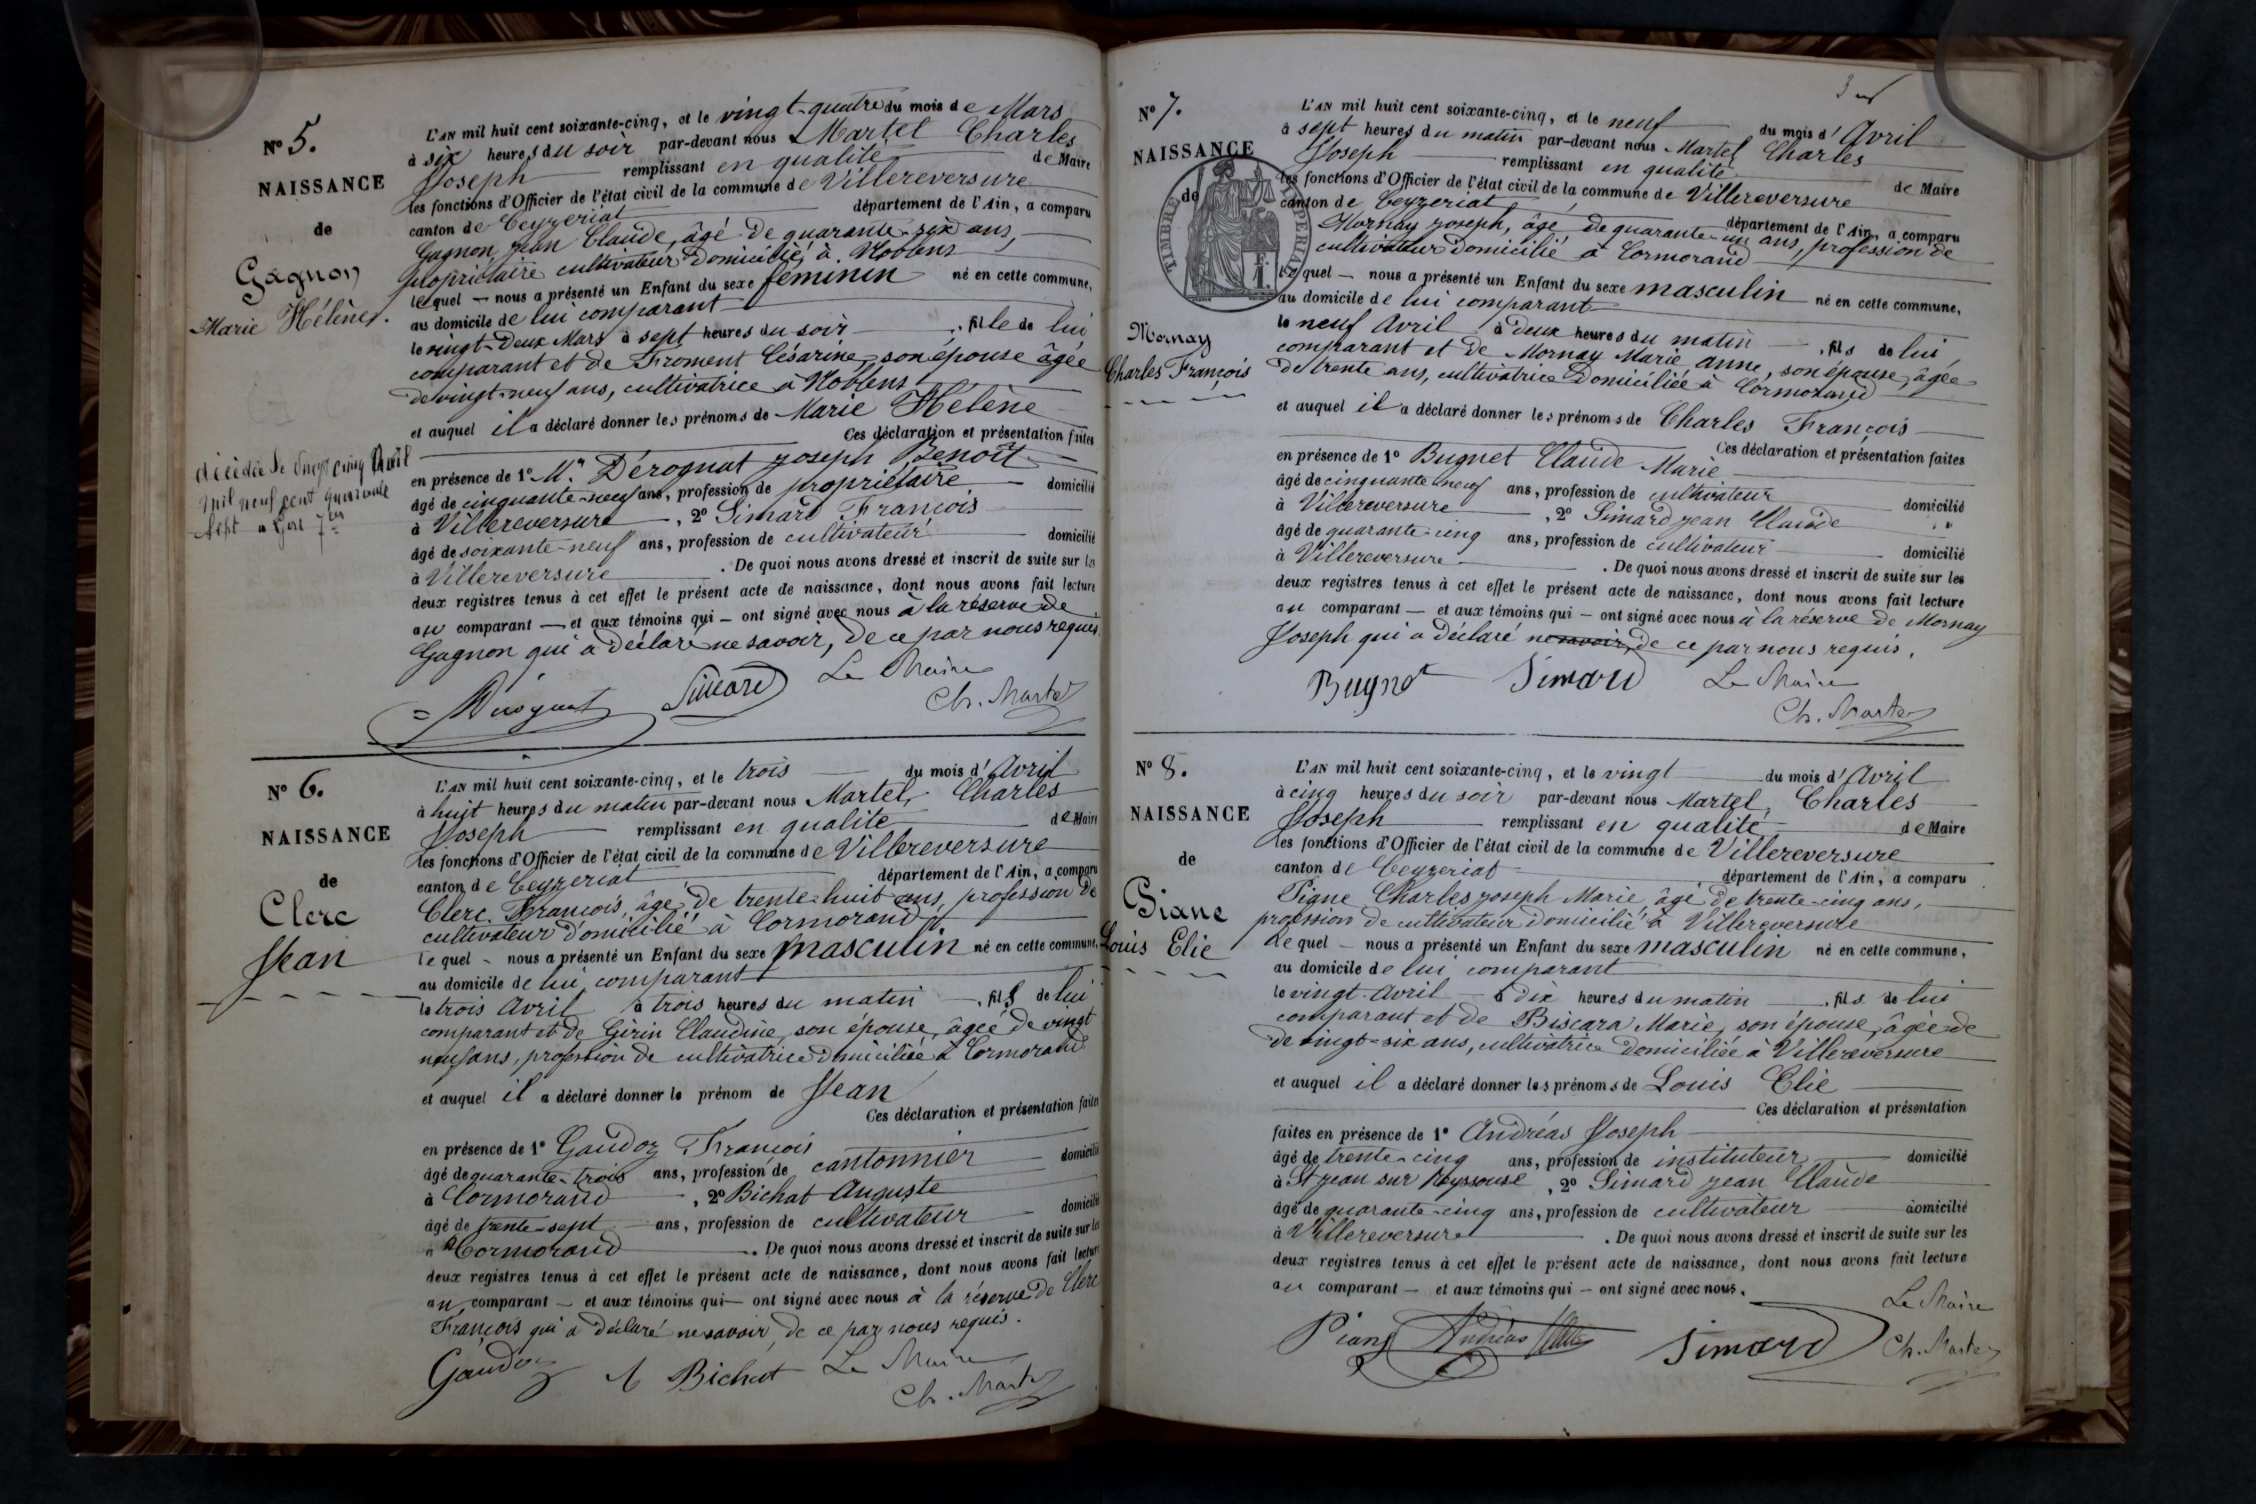 N° 5.
NAISSANCE
de
Gagnon
Marie Hélène.
décédée le vingt cinq Avril
mil neuf cent quarante
sept à
L'AN mil huit cent soixante-cinq, et le vingt-quatre du mois de Mars
à six heures du soir par-devant nous Martel Charles
Joseph remplissant en qualité de Maire
les fonctions d'Officier de l'état civil de la commune de Villereversure
canton de Ceyzeriat département de l'Ain, a comparu
Gagnon, Jean Claude, âgé de quarante-six ans,
propriétaire cultivateur domicilié à Noblens
lequel — nous a présenté un Enfant du sexe féminin né en cette commune,
au domicile de lui comparant
le vingt-deux Mars à sept heures du soir, fille de lui
comparant et de Froment Césarine, son épouse âgée
de vingt-neuf ans, cultivatrice à Noblens
et auquel il a déclaré donner les prénoms de Marie Hélène
Ces déclaration et présentation faites
en présence de 1° Mr Dérognat Joseph Benoît
âgé de cinquante-neuf ans, profession de propriétaire domicilié
à Villereversure, 2° Simard François
âgé de soixante-neuf ans, profession de cultivateur domicilié
à Villereversure. De quoi nous avons dressé et inscrit de suite sur les
deux registres tenus à cet effet le présent acte de naissance, dont nous avons fait lecture
au comparant — et aux témoins qui — ont signé avec nous à la réserve de
Gagnon qui a déclaré ne savoir, de ce par nous requis.
Dérognat Simard Le Maire
Ch. Martel
N° 6.
NAISSANCE
de
Clerc
Jean
L'AN mil huit cent soixante-cinq, et le trois du mois d'Avril
à huit heures du matin par-devant nous Martel, Charles
Joseph remplissant en qualité de Maire
les fonctions d'Officier de l'état civil de la commune de Villereversure
canton de Ceyzeriat département de l'Ain, a comparu
Clerc François, âgé de trente-huit ans, profession de
cultivateur domicilié à Cormorand
lequel - nous a présenté un Enfant du sexe masculin né en cette commune,
au domicile de lui comparant
le trois Avril à trois heures du matin, fils de lui
comparant et de Girin Claudine, son épouse, âgée de vingt
neuf ans, profession de cultivatrice domiciliée à Cormorand
et auquel il a déclaré donner le prénom de Jean
Ces déclaration et présentation faites
en présence de 1° Gaudoz François
âgé de quarante-trois ans, profession de cantonnier domicilié
à Cormorand, 2° Bichat Auguste
âgé de trente-sept ans, profession de cultivateur domicilié
à Cormorand. De quoi nous avons dressé et inscrit de suite sur les
deux registres tenus à cet effet le présent acte de naissance, dont nous avons fait lecture
au comparant — et aux témoins qui — ont signé avec nous à la réserve de Clerc
François qui a déclaré ne savoir, de ce par nous requis.
Gaudoz A Bichat Le Maire
Ch. Martel
N° 7.
NAISSANCE
de
TIMBRE IMPERIAL
Mornay
Charles François
L'AN mil huit cent soixante-cinq, et le neuf du mois d'Avril
à sept heures du matin par-devant nous Martel Charles
Joseph remplissant en qualité de Maire
les fonctions d'Officier de l'état civil de la commune de Villereversure
canton de Ceyzeriat département de l'Ain, a comparu
Mornay Joseph, âgé de quarante-un ans, profession de
cultivateur domicilié à Cormorand
lequel — nous a présenté un Enfant du sexe masculin né en cette commune,
au domicile de lui comparant
le neuf Avril à deux heures du matin, fils de lui
comparant et de Mornay Marie Anne, son épouse, âgée
de trente ans, cultivatrice domiciliée à Cormorand
et auquel il a déclaré donner les prénoms de Charles François
Ces déclaration et présentation faites
en présence de 1° Bugnet Claude Marie
âgé de cinquante neuf ans, profession de cultivateur domicilié
à Villereversure, 2° Simard Jean Claude
âgé de quarante-cinq ans, profession de cultivateur domicilié
à Villereversure. De quoi nous avons dressé et inscrit de suite sur les
deux registres tenus à cet effet le présent acte de naissance, dont nous avons fait lecture
au comparant — et aux témoins qui — ont signé avec nous à la réserve de Mornay
Joseph qui a déclaré ne savoir, de ce par nous requis.
Bugnet Simard Le Maire
Ch. Martel
N° 8.
NAISSANCE
de
Piane
Louis Elie
L'AN mil huit cent soixante-cinq, et le vingt du mois d'Avril
à cinq heures du soir par-devant nous Martel, Charles
Joseph remplissant en qualité de Maire
les fonctions d'Officier de l'état civil de la commune de Villereversure
canton de Ceyzeriat département de l'Ain, a comparu
Piane Charles Joseph Marie âgé de trente-cinq ans,
profession de cultivateur domicilié à Villereversure
Lequel — nous a présenté un Enfant du sexe masculin né en cette commune,
au domicile de lui comparant
le vingt Avril à dix heures du matin, fils de lui
comparant et de Biscara Marie, son épouse, âgée de
de vingt-six ans, cultivatrice domiciliée à Villereversure
et auquel il a déclaré donner les prénoms de Louis Elie
Ces déclaration et présentation
faites en présence de 1° Andréas Joseph
âgé de trente-cinq ans, profession de instituteur domicilié
à St Jean sur Reyssouse, 2° Simard Jean Claude
âgé de quarante-cinq ans, profession de cultivateur domicilié
à Villereversure. De quoi nous avons dressé et inscrit de suite sur les
deux registres tenus à cet effet le présent acte de naissance, dont nous avons fait lecture
au comparant — et aux témoins qui — ont signé avec nous.
Piane Andréas Simard Le Maire
Ch. Martel